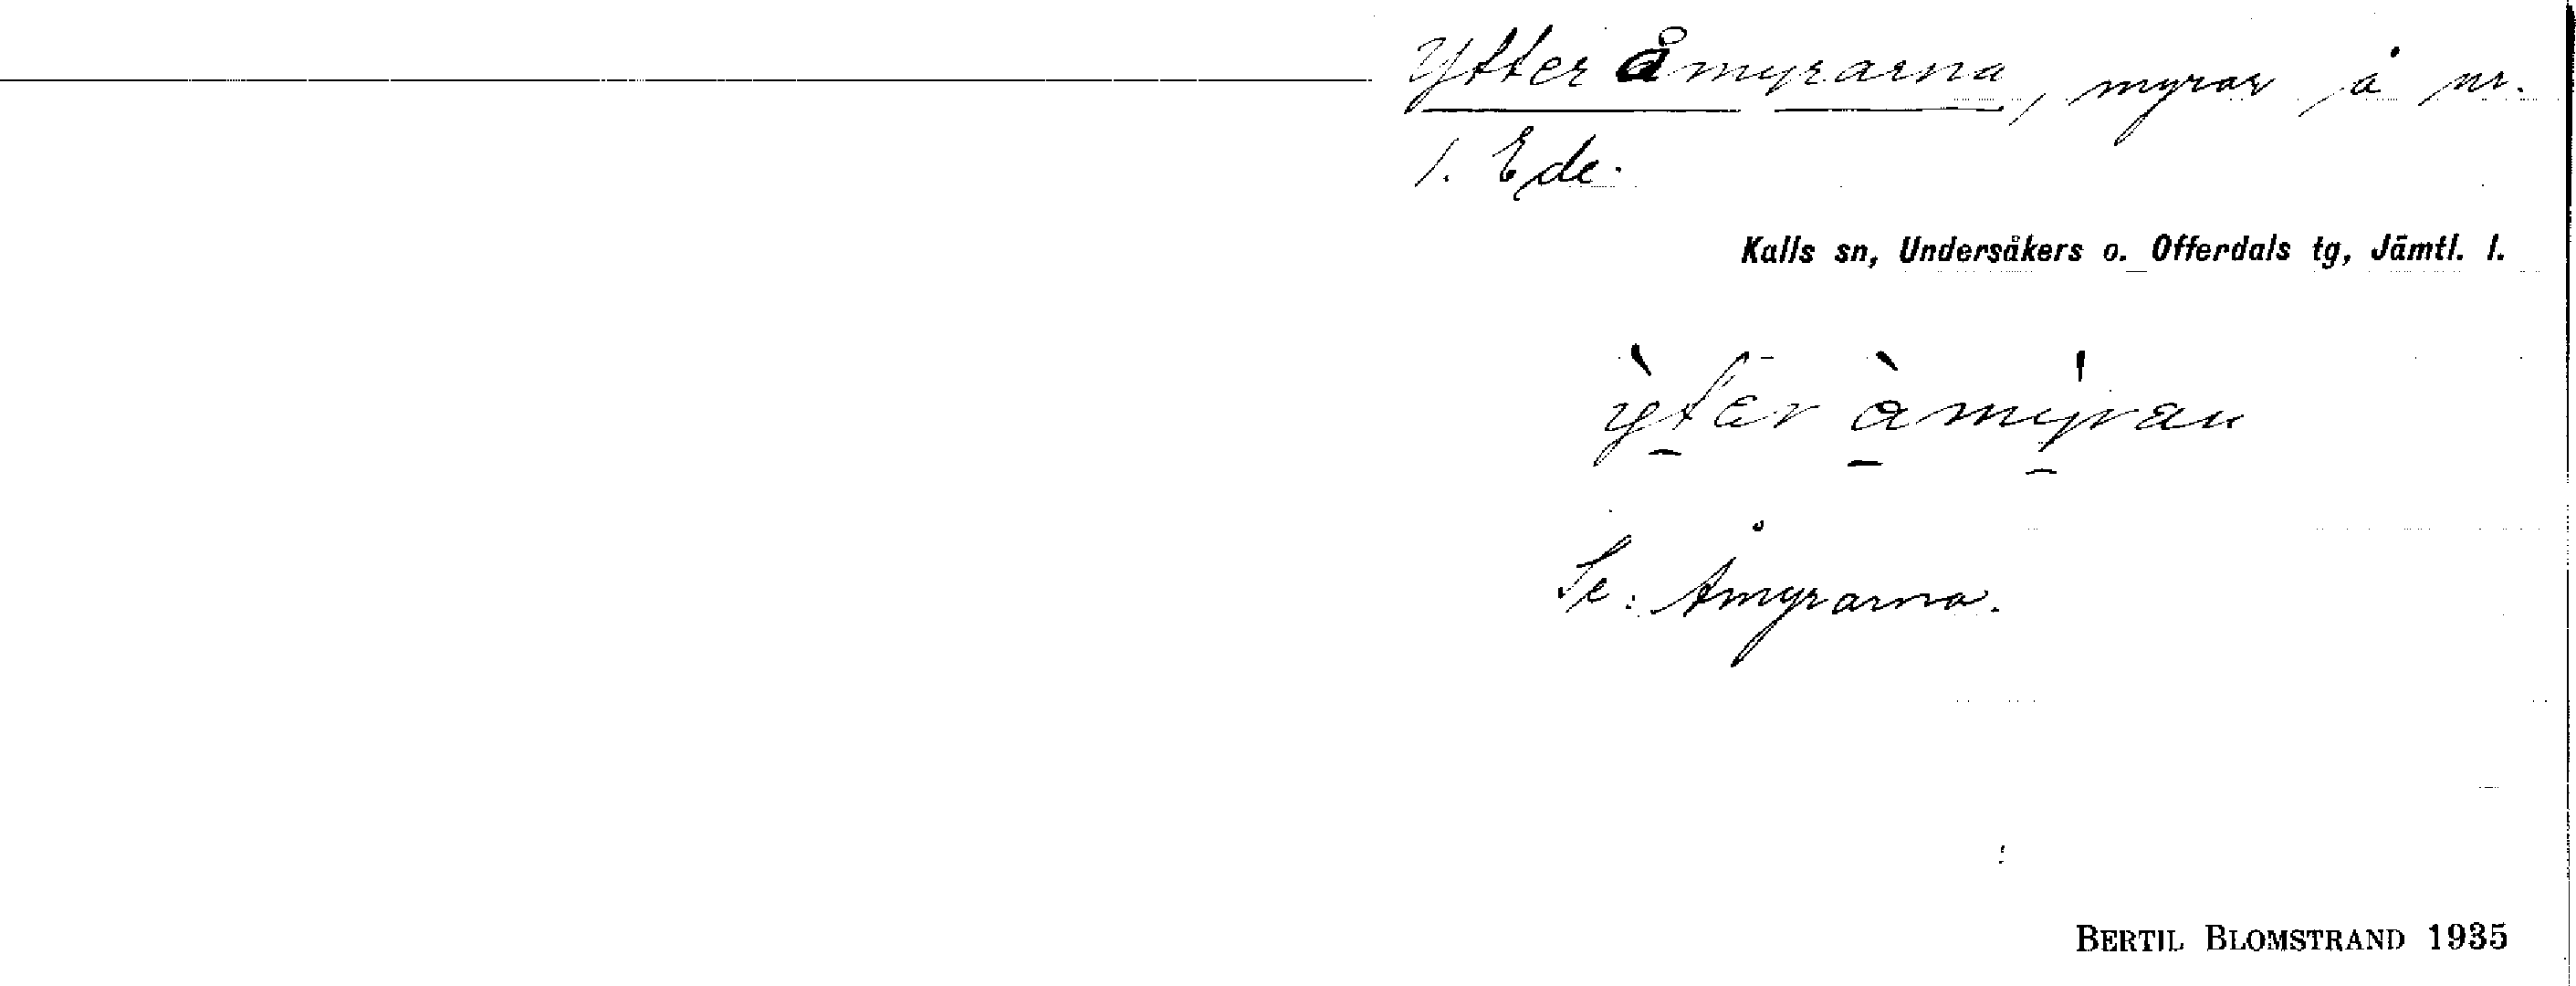 Ytter åmyrarna, myrar å nr.
1. Ede.
Kalls sn, Undersåkers o. Offerdals tg, Jämtl. l.
Se: Åmyrarna.
BERTIL BLOMSTRAND 1935